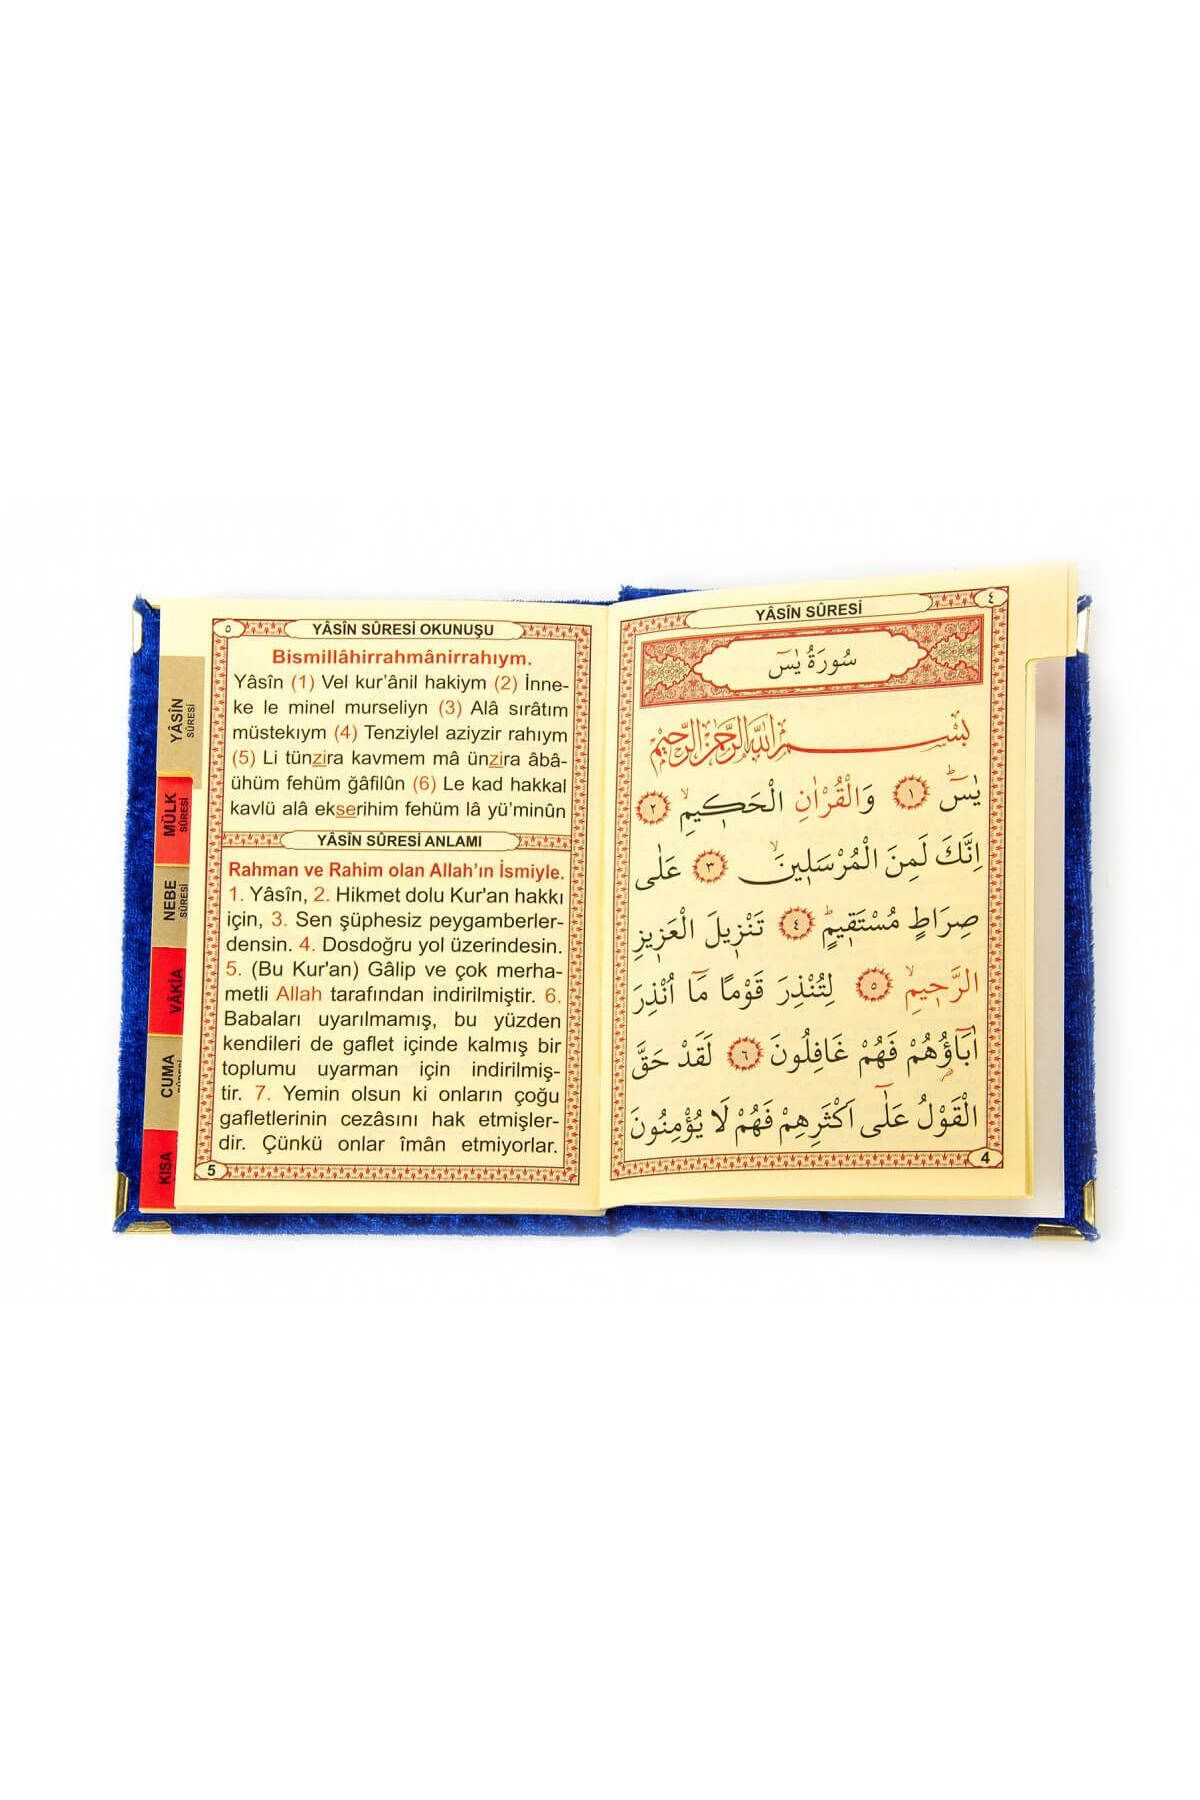 YÂSÎN SÛRESİ
٤
سُورَةُ يٰسٓ
بِسْــــــمِ اللّٰهِ الرَّحْمٰنِ الرَّحٖيمِ
يٰسٓۜ ١ وَالْقُرْاٰنِ الْحَكٖيمِۙ ٢
اِنَّكَ لَمِنَ الْمُرْسَلٖينَۙ ٣ عَلٰى
صِرَاطٍ مُسْتَقٖيمٍۜ ٤ تَنْزٖيلَ الْعَزٖيزِ
الرَّحٖيمِۙ ٥ لِتُنْذِرَ قَوْمًا مَٓا اُنْذِرَ
اٰبَٓاؤُ۬هُمْ فَهُمْ غَافِلُونَ ٦ لَقَدْ حَقَّ
الْقَوْلُ عَلٰٓى اَكْثَرِهِمْ فَهُمْ لَا يُؤْمِنُونَ
4
٥
YÂSÎN SÛRESİ OKUNUŞU
Bismillâhirrahmânirrahıym.
Yâsîn (1) Vel kur’ânil hakiym (2) İnne-
ke le minel murseliyn (3) Alâ sırâtım
müstekıym (4) Tenziylel aziyzir rahıym
(5) Li tünzira kavmem mâ ünzira âbâ-
ühüm fehüm ğâfilûn (6) Le kad hakkal
kavlü alâ ekserihim fehüm lâ yü’minûn
YÂSÎN SÛRESİ ANLAMI
Rahman ve Rahim olan Allah’ın İsmiyle.
1. Yâsîn, 2. Hikmet dolu Kur'an hakkı
için, 3. Sen şüphesiz peygamberler-
densin. 4. Dosdoğru yol üzerindesin.
5. (Bu Kur'an) Gâlip ve çok merha-
metli Allah tarafından indirilmiştir. 6.
Babaları uyarılmamış, bu yüzden
kendileri de gaflet içinde kalmış bir
toplumu uyarman için indirilmiş-
tir. 7. Yemin olsun ki onların çoğu
gafletlerinin cezâsını hak etmişler-
dir. Çünkü onlar îmân etmiyorlar.
5
YÂSÎN
SÛRESİ
MÜLK
SÛRESİ
NEBE
SÛRESİ
VÂKİA
CUMA
KISA